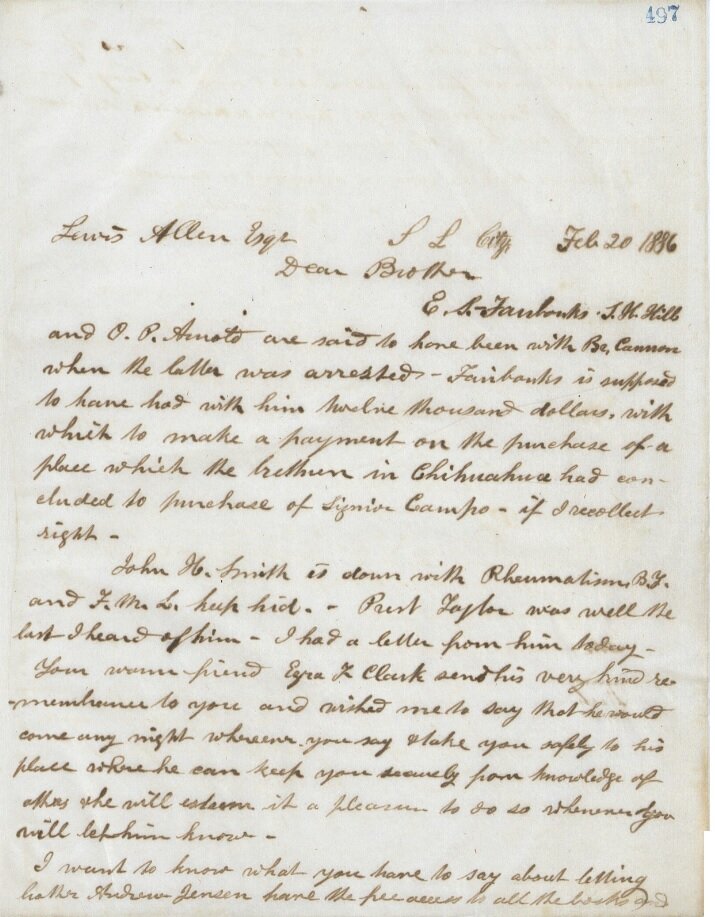 497
Lewis Allen Esqr S L City, Feb 20 1886
Dear Brother
E. S. Fairbanks. S. H. Hill
and O. P. Arnold are said to have been with Br, Cannon
when the latter was arrested - Fairbanks is supposed
to have had with him twelve thousand dollars, with
which to make a payment on the purchase of a
place which the brethren in Chihuahua had con-
cluded to purchase of Signior Campo - if I recollect
right -
John H. Smith is down with Rheumatism, B.Y.
and F. M. L. keep hid. - Prest Taylor was well the
last I heard of him - I had a letter from him today -
Your warm friend Ezra T Clark send his very kind re-
-membrance to you and wished me to say that he would
come any night wherever you say & take you safely to his
place where he can keep you securely from knowledge of
others & he will esteem it a pleasure to do so whenever you
will let him know -
I want to know what you have to say about letting
brother Andrew Jensen have the free access to all the books and